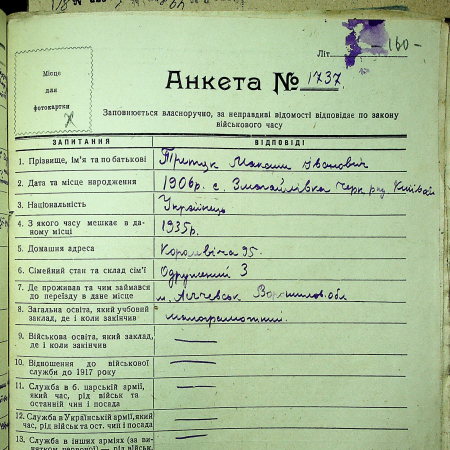 Літ
- 160 -
Місце
для
фотокартки
Анкета № 1737.
Заповнюється власноручно, за неправдиві відомості відповідає по закону
військового часу
ЗАПИТАННЯ ВІДПОВІДІ
1. Прізвище, ім'я та по батькові Максим Іванович
2. Дата та місце народження 1906р. с. Змагайлівка Черк. р-ну Київськ
3. Національність Українець
4. З якого часу мешкає в да-
ному місці 1935р.
5. Домашня адреса 95.
6. Сімейний стан та склад сім'ї Одружений 3
7. Де проживав та чим займався
до переїзду в дане місце м. Алчевськ Ворошилов. обл
8. Загальна освіта, який учбовий
заклад, де і коли закінчив малограмотний.
9. Військова освіта, який заклад,
де і коли закінчив —
10. Відношення до військової
служби до 1917 року —
11. Служба в б. царській армії,
який час, рід військ та
останній чин і посада —
12. Служба в Українській армії, який
час, рід військ та ост. чин і посада —
13. Служба в інших арміях (за ви-
нятком червоної) — рід військ,